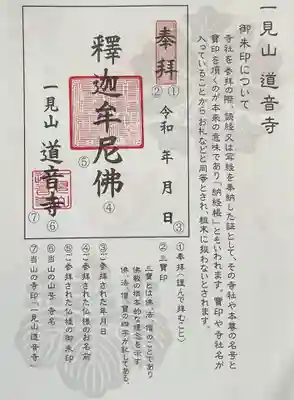 一見山 道音寺
御朱印について
寺社を参拝の際、読経又は写経を奉納した証として、その寺社や本尊の名号と
寶印を頂くのが本来の意味であり「納経帳」ともいわれます。寶印や寺社名が
入っていることからお札などと同等とされ、粗末に扱わないとされます。
奉拝
①
②
令和 年 月 日
③
釋迦牟尼佛
④
⑤
一見山 道音寺
⑥
⑦
①奉拝(謹んで拝むこと)
②三寶印
三寶とは佛、法、僧のことであり
佛教の根本的な理念を示す。
佛、法、僧、寶の四字が記してある。
③ご参拝された年月日
④ご参拝された仏様のお名前
⑤ご参拝された仏様の御朱印
⑥当山の山号 寺名
⑦当山の寺印「一見山道音寺」